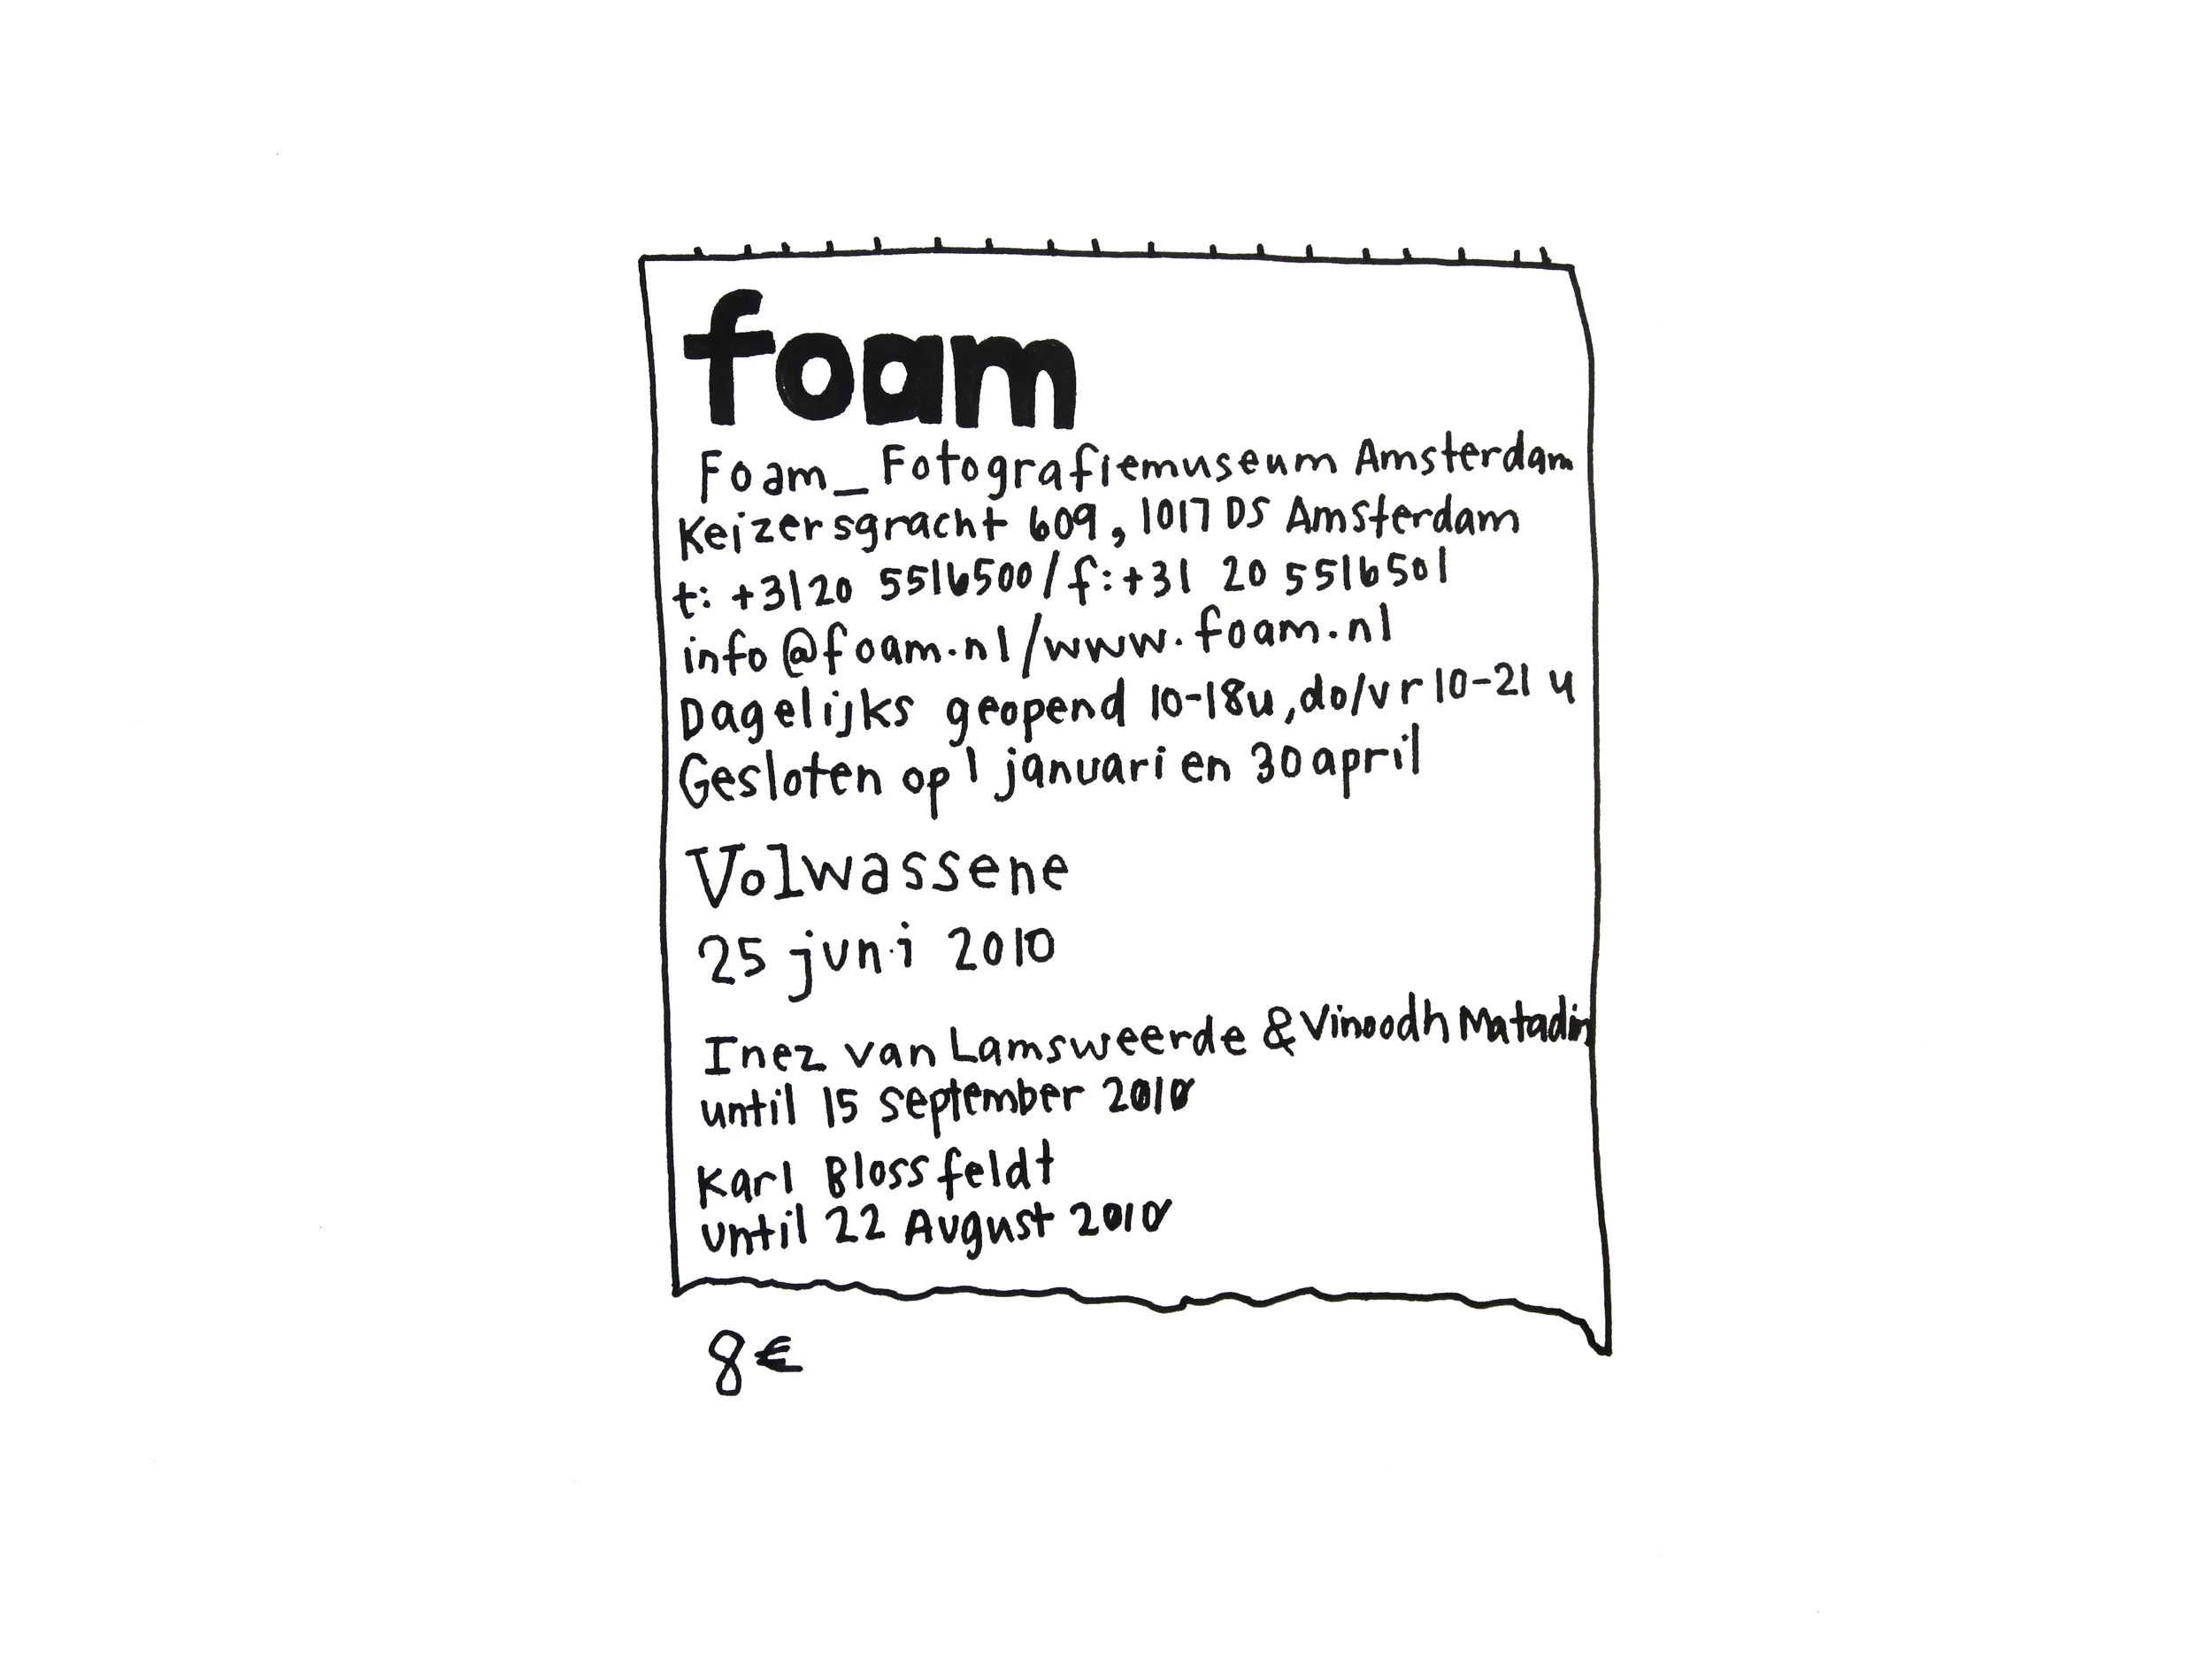 foam
Foam_Fotografiemuseum Amsterdam
Keizersgracht 609, 1017 DS Amsterdam
t: +3120 5516500/f:+31 20 5516501
info@foam.nl/www.foam.nl
Dagelijks geopend 10-18u, do/vr 10-21 u
Gesloten op 1 januari en 30 april
Volwassene
25 juni 2010
Inez van Lamsweerde & Vinoodh Matadin
until 15 september 2010
Karl Blossfeldt
until 22 August 2010
8€